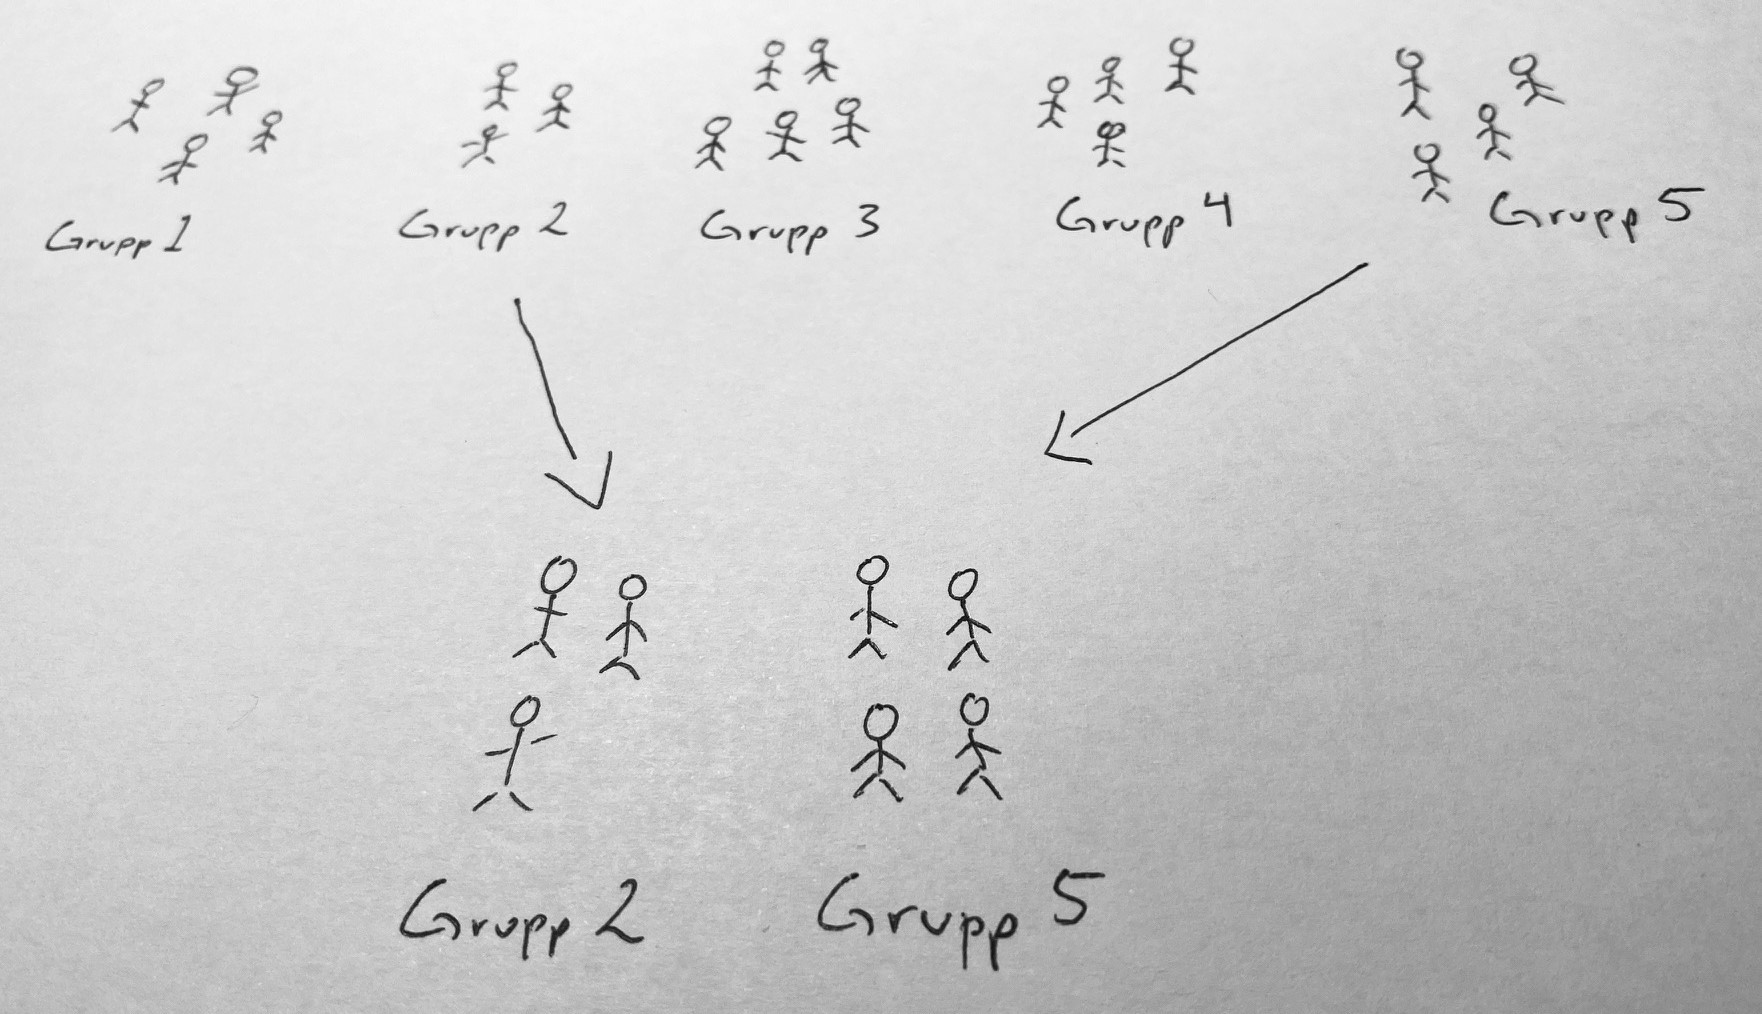 Grupp 1
Grupp 2
Grupp 3
Grupp 4
Grupp 5
Grupp 2
Grupp 5